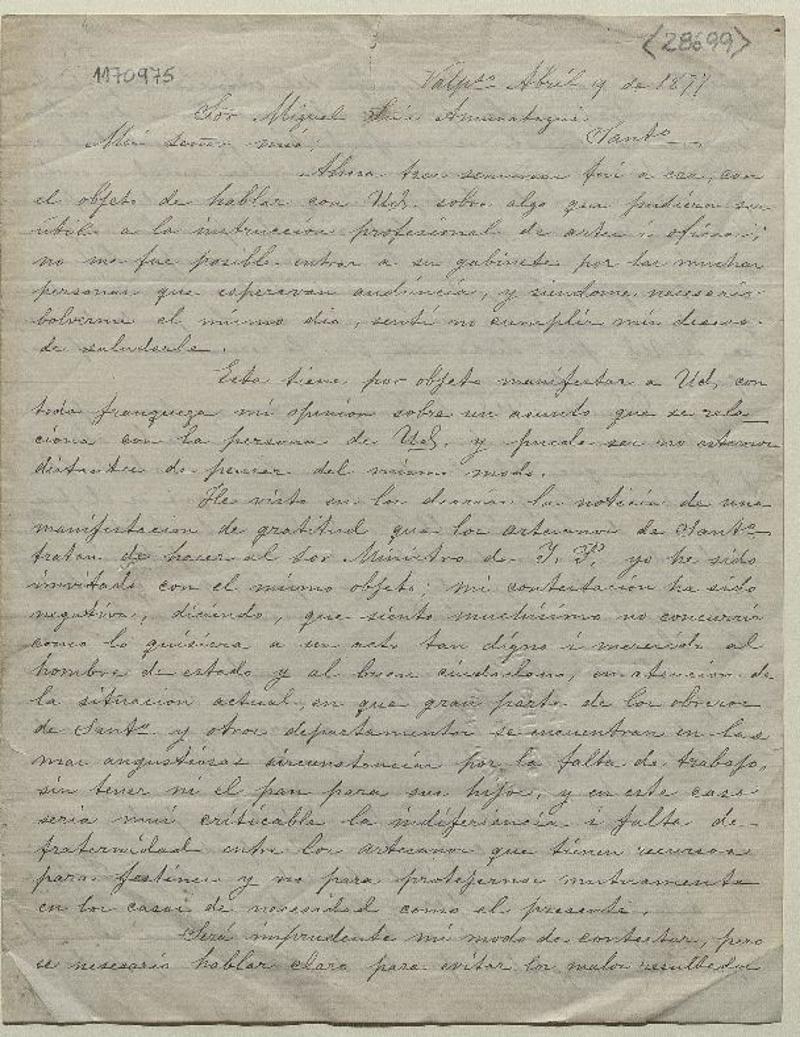 1170975
(28699)
Valpso Abril 9 de 1877
Sor Miguel Luis Amunategui
Santo
Mui señor mio;
Ahora tres semanas fui a esa, con
el objeto de hablar con Ud. sobre algo que pudiera ser
útil a la instruccion profesional de artes i oficios;
no me fue posible entrar a su gabinete por las muchas
personas que esperavan audiencia, y siendome necesario
bolverme el mismo dia, sentí no cumplir mis deseos
de saludarle.
Esta tiene por objeto manifestar a Ud. con
toda franqueza mi opinion sobre un asunto que se rela_
ciona con la persona de Ud. y puede ser no estemos
distantes de pensar del mismo modo.
He visto en los diarios la noticia de una
manifestacion de gratitud que los artesanos de Santo
tratan de hacer al Sor Ministro de I. P. yo he sido
invitado con el mismo objeto; mi contestación ha sido
negativa, diciendo, que siento muchísimo no concurrir
como lo quisiera a un acto tan digno i merecido al
hombre de estado y al buen ciudadano, en atencion de
la situacion actual, en que gran parte de los obreros
de Santo y otros departamentos se encuentran en las
mas angustiosas sircunstancias por la falta de trabajo,
sin tener ni el pan para sus hijos, y en este caso
seria mui criticable la indiferiencia i falta de
fraternidad entre los artesanos que tienen recursos
para festines y no para protejernos mutuamente
en los casos de necesidad como el presente.
Será imprudente mi modo de contestar, pero
es nesesario hablar claro para evitar los malos resultados